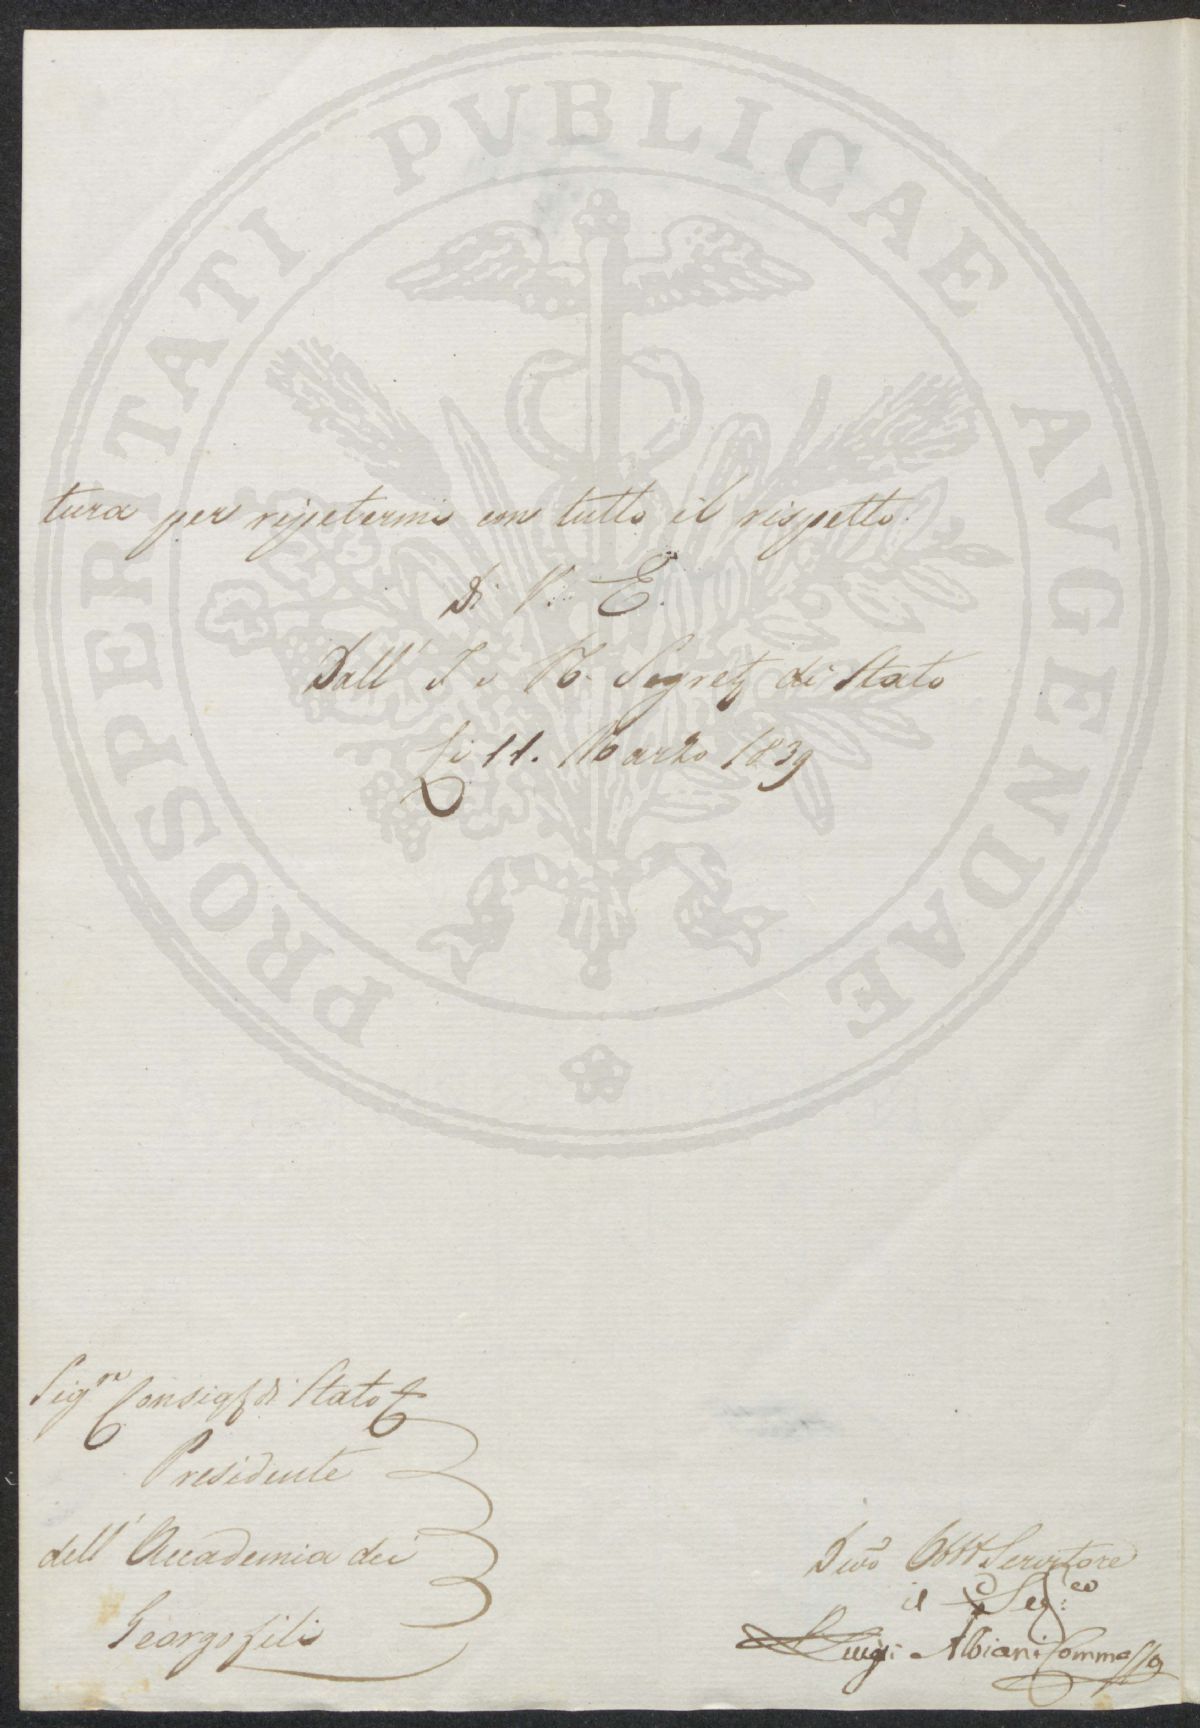 PROSPERITATI PVBLICAE AVGENDAE
tura per ripetermi con tutto il rispetto
Di V. E.
Dall' I e R. Segret di Stato
Li 11. Marzo 1839
Sig.re Consigl di Stato
Presidente
dell' Accademia dei
Georgofili
Dev.o Obb Servitore
il Seg.
Luigi Albiani Tommasi